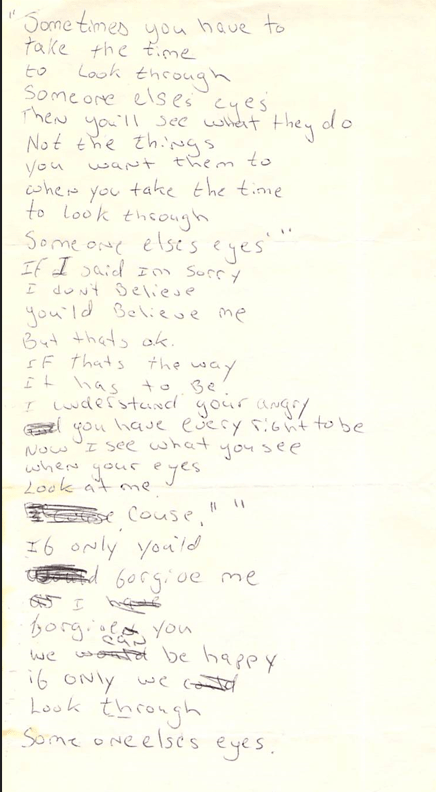 "Sometimes you have to
take the time
to Look through
Someone elses eyes
Then you'll see what they do
Not the things
you want them to
when you take the time
to look through
Someone elses eyes" "
If I said Im sorry
I don't Believe
you'ld Believe me
But thats ok.
IF thats the way
It has to Be
I understand your angry
you have every right to be
Now I see what you see
when your eyes
Look at me
Couse, " "
If only you'ld
forgive me
I
forgive you
we can be happy
if only we
Look through
Some one elses eyes.